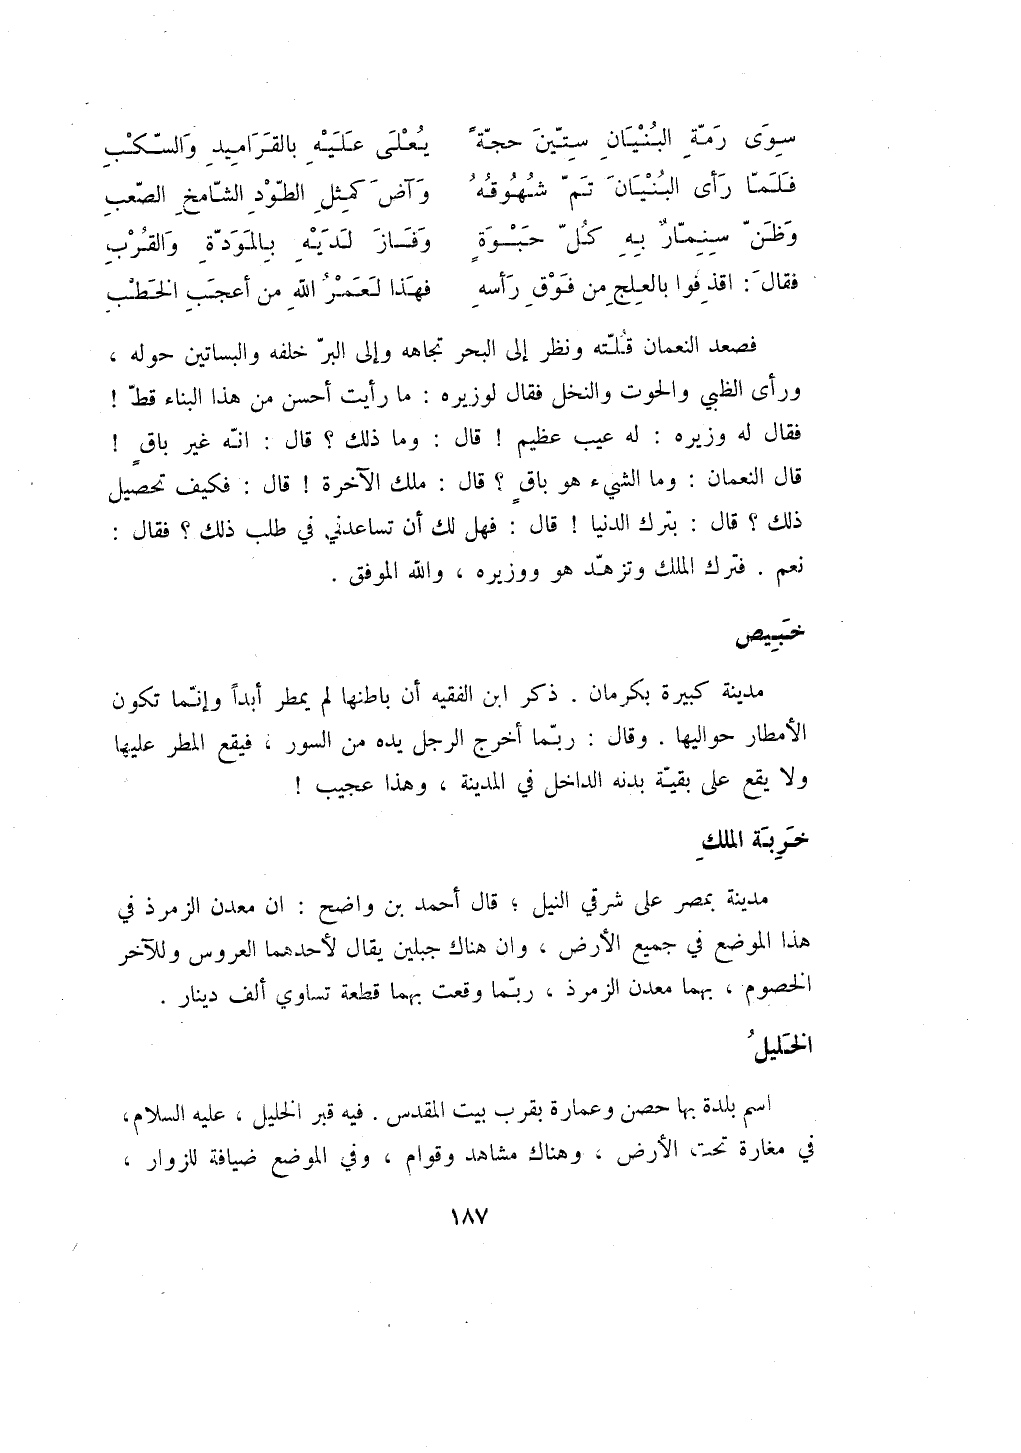 سِوَى رَمّةِ البُنْيَانِ سِتّينَ حجّةً يُعْلَى عَلَيْهِ بالقَرَامِيدِ وَالسّكْبِ
فَلَمّا رَأى البُنْيَانَ تَمّ شُهُوقُهُ وَآضَ كَمِثلِ الطّوْدِ الشّامخِ الصّعبِ
وَظَنّ سِنِمّارٌ بِهِ كُلّ حَبْوَةٍ وَفَازَ لَدَيْهِ بِالمَوَدّةِ وَالقُرْبِ
فقالَ : اقذِفوا بالعِلجِ من فَوْقِ رَأسهِ فهَذا لَعَمْرُ اللهِ من أعجَبِ الخَطْبِ
فصعد النعمان قُلّته ونظر إلى البحر تجاهه وإلى البرّ خلفه والبساتين حوله ،
ورأى الظبي والحوت والنخل فقال لوزيره : ما رأيت أحسن من هذا البناء قطّ !
فقال له وزيره : له عيب عظيم ! قال : وما ذلك ؟ قال : انّه غير باقٍ !
قال النعمان : وما الشيء هو باقٍ ؟ قال : ملك الآخرة ! قال : فكيف تحصيل
ذلك ؟ قال : بترك الدنيا ! قال : فهل لك أن تساعدني في طلب ذلك ؟ فقال :
نعم . فترك الملك وتزهّد هو ووزيره ، والله الموفق .
خَبِيص
مدينة كبيرة بكرمان . ذكر ابن الفقيه أن باطنها لم يمطر أبداً وإنّما تكون
الأمطار حواليها . وقال : ربّما أخرج الرجل يده من السور ، فيقع المطر عليها
ولا يقع على بقيّة بدنه الداخل في المدينة ، وهذا عجيب !
خَرِبَة الملكِ
مدينة بمصر على شرقي النيل ؛ قال أحمد بن واضح : ان معدن الزمرذ في
هذا الموضع في جميع الأرض ، وان هناك جبلين يقال لأحدهما العروس وللآخر
الخصوم ، بهما معدن الزمرذ ، ربّما وقعت بهما قطعة تساوي ألف دينار .
الخَليلُ
اسم بلدة بها حصن وعمارة بقرب بيت المقدس . فيه قبر الخليل ، عليه السلام،
في مغارة تحت الأرض ، وهناك مشاهد وقوام ، وفي الموضع ضيافة للزوار ،
١٨٧